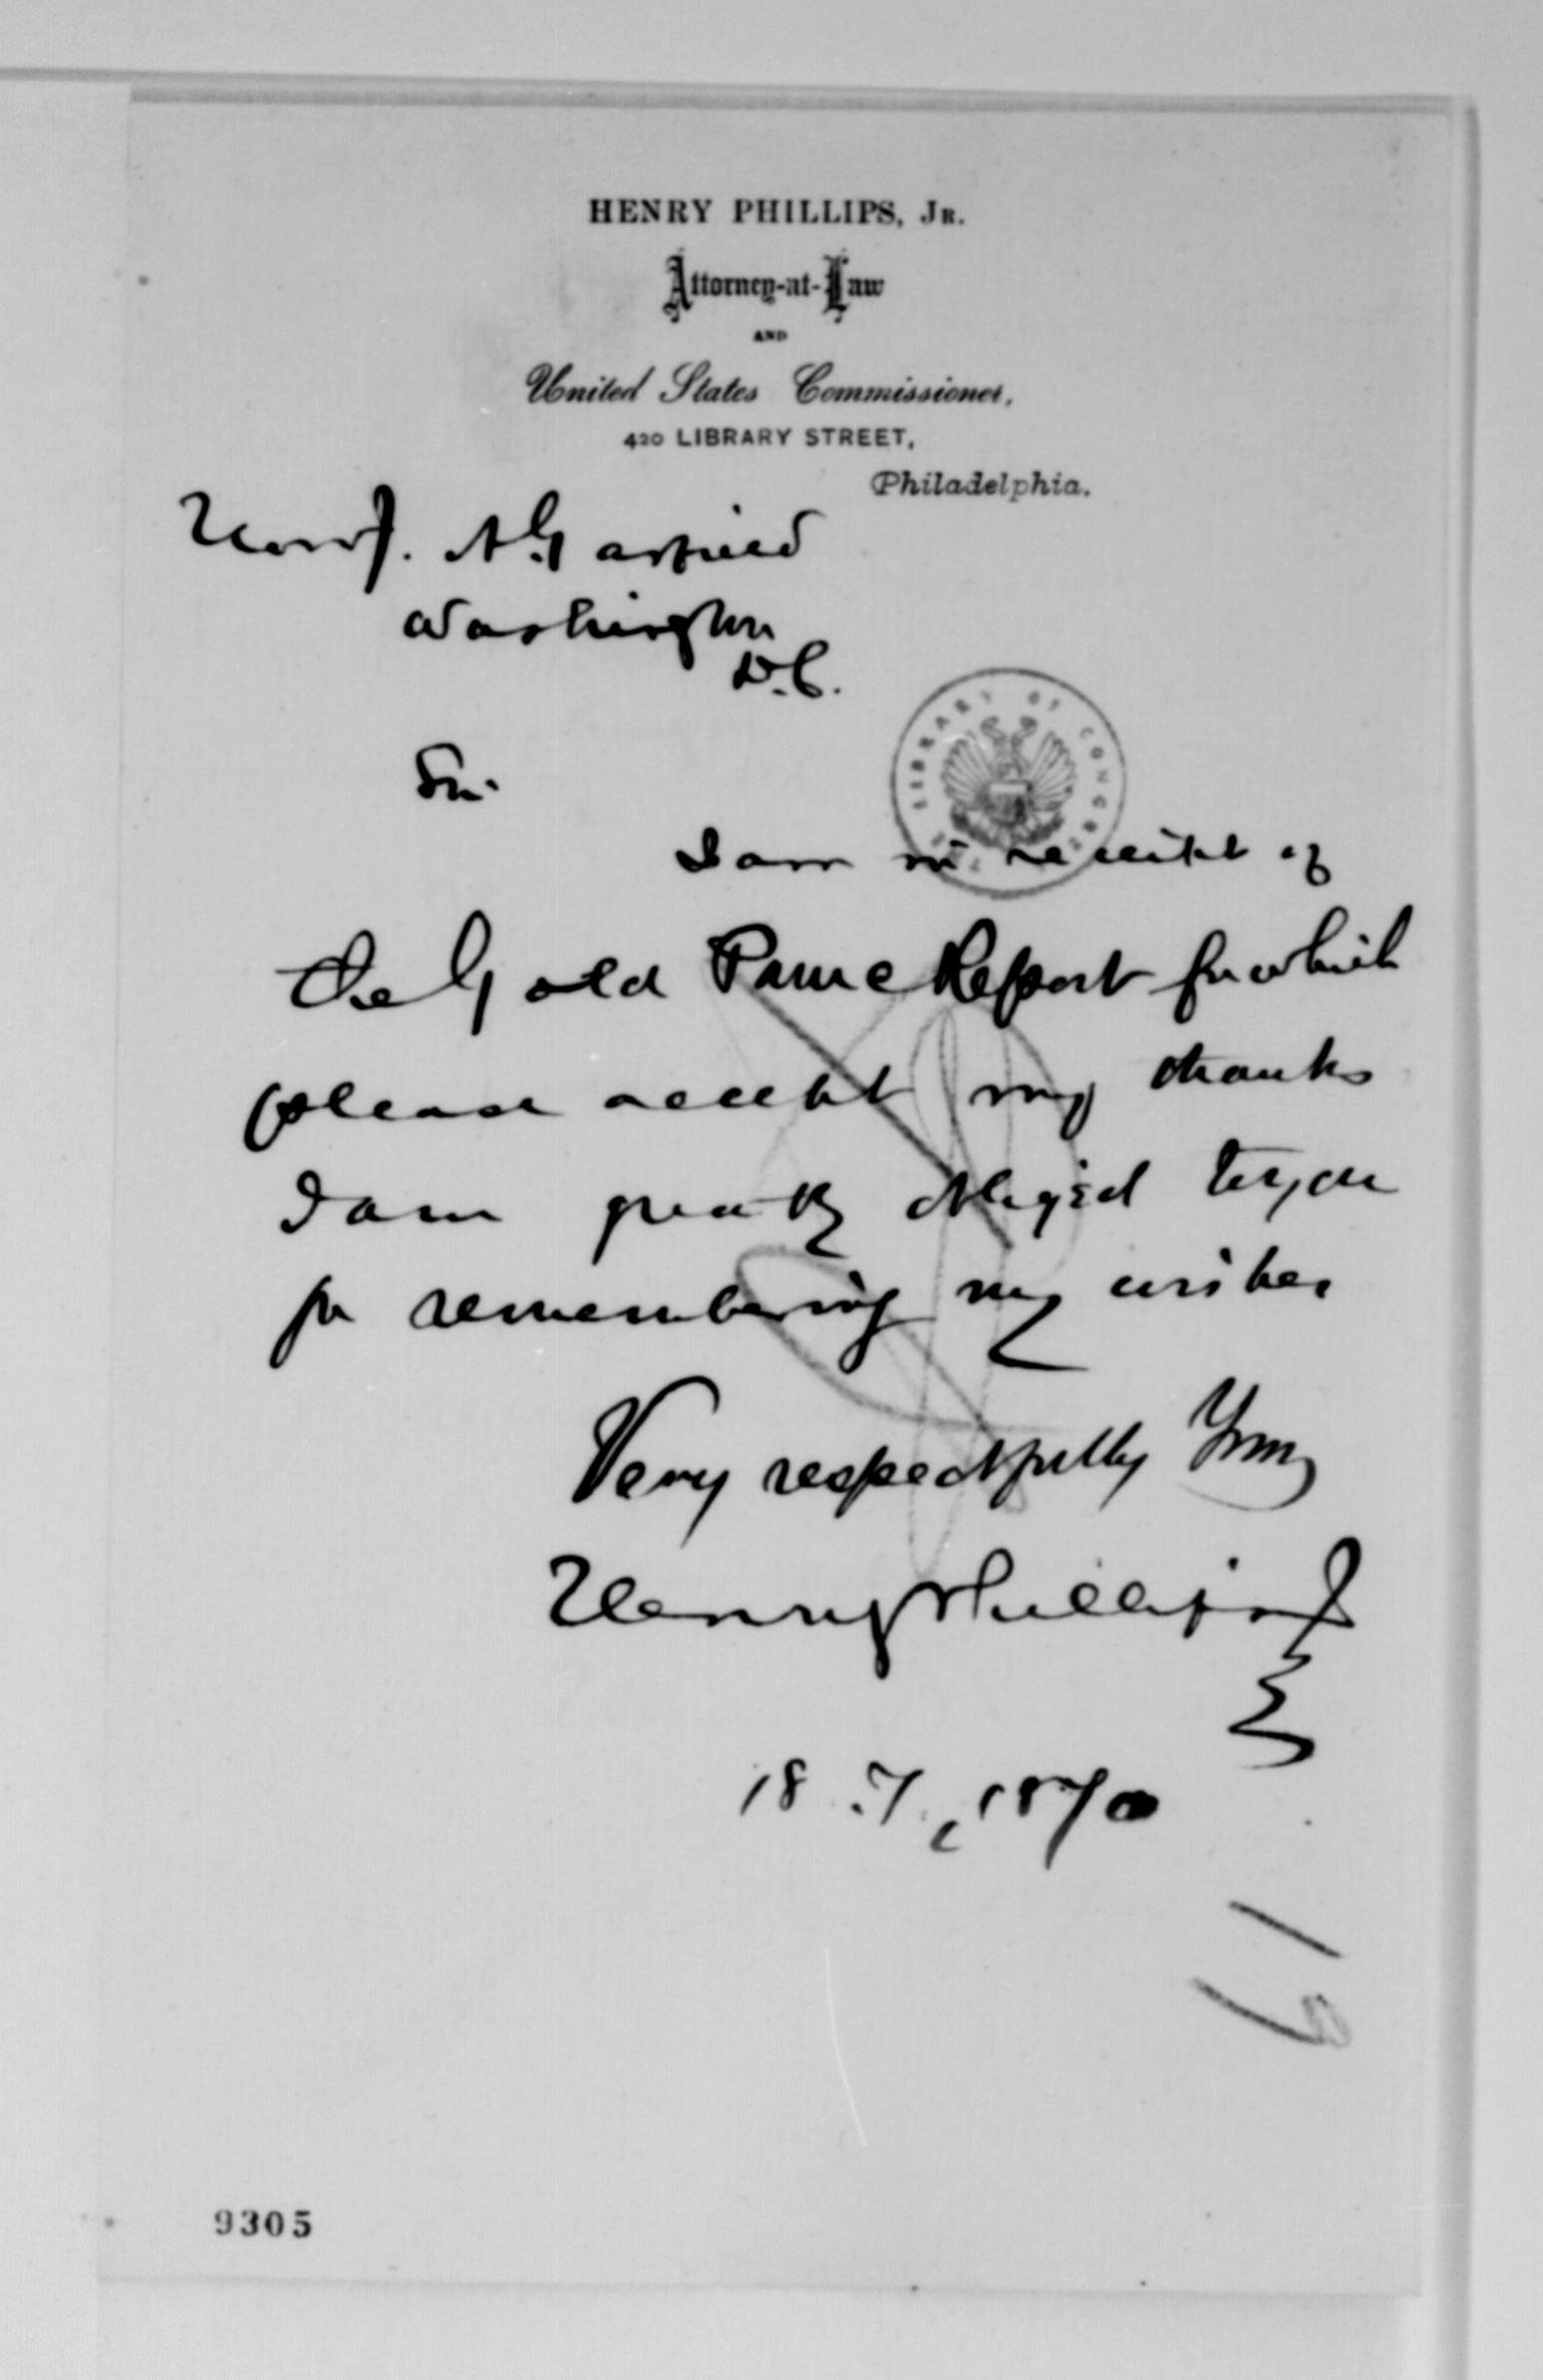 HENRY PHILLIPS, JR.
Attorney-at-Law
AND
United States Commissioner,
420 LIBRARY STREET,
Philadelphia.
Hon J. A. Garfield
Washington
D.C.
Sir.
LIBRARY OF CONGRESS
I am in receipt of
the Gold Panic Report for which
please accept my thanks
I am greatly obliged to you
for remembering my wishes
Very respectfully Yours
Henry Phillips Jr
18 . 7, 1870
19
9305